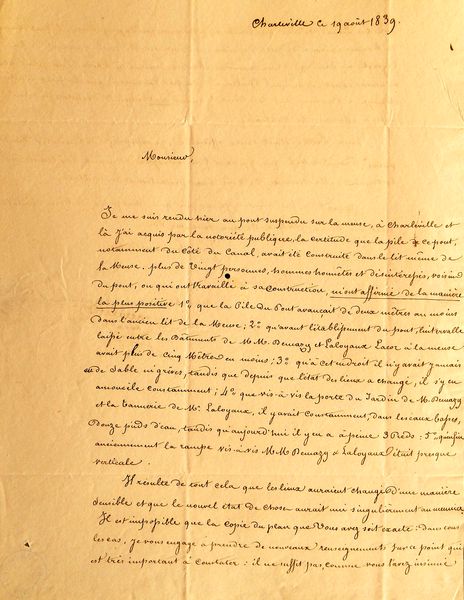 Charleville le 19 août 1839.
Monsieur,
Je me suis rendu hier au pont suspendu sur la meuse, à Charleville et
là j'ai acquis par la notoriété publique, la certitude que la pile de ce pont,
notamment du côté du Canal, avait été construite dans le lit même de
la Meuse, plus de vingt personnes, hommes honnêtes et désintéressés, voisins
du pont, ou qui ont travaillé à sa construction, m'ont affirmé de la manière
la plus positive 1° que la Pile du Pont avançait de deux mètres au moins
dans l'ancien lit de la Meuse; 2° qu'avant l'établissement du pont, l'intervalle
laissé entre les Bâtiments de M.M. Demazy et Laloyaux à la meuse
avait plus de cinq Mètres en moins; 3° qu'à cet endroit il n'y avait jamais
de sable ni grèves, tandis que depuis que l'état des lieux a changé, il s'y en
amoncèle constamment; 4° que vis-à-vis la porte du Jardin de M. Demazy
et la tannerie de Mr. Laloyaux, il y avait constamment, dans les eaux basses,
Douze pieds d'eau, tandis qu'aujourd'hui il y en a à peine 3 Pieds: 5° qu'enfin
anciennement la rampe vis-à-vis M.M. Demazy & Laloyaux était presque
verticale.
Il résulte de tout cela que les lieux auraient changé d'une manière
sensible et que le nouvel état de choses aurait nui singulièrement au
Il est impossible que la copie du plan que vous avez soit exacte: dans tous
les cas, je vous engage à prendre de nouveaux renseignements sur ce point qui
est très important à constater: il ne suffit pas, comme vous l'avez insinué